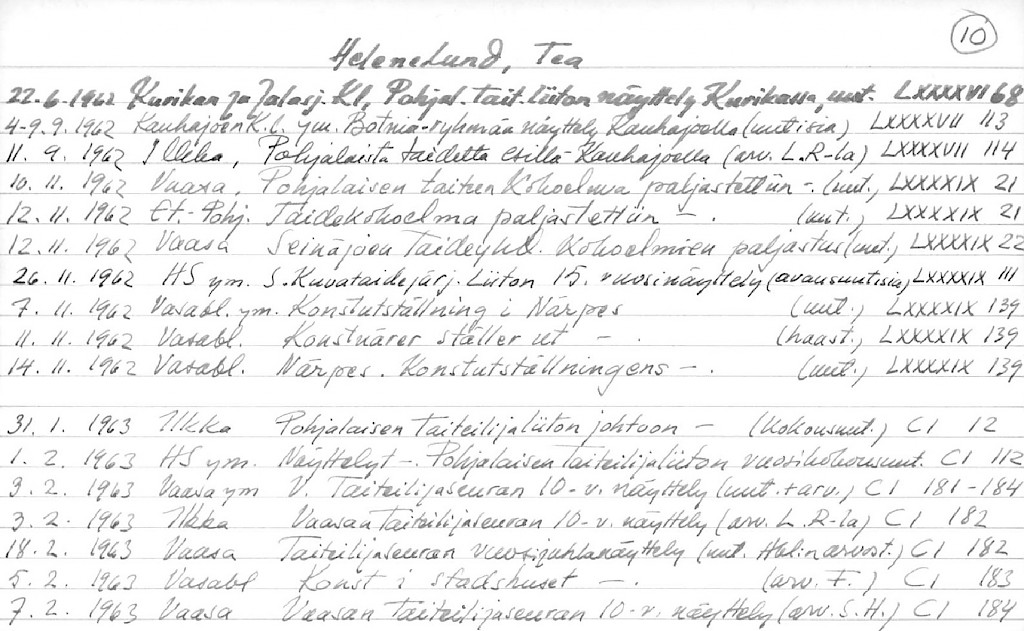 10
Helenelund, Tea
22.6.1962 Kurikan ja Jalasj. Kl, Pohjal. tait.liiton näyttely Kurikassa, uut. LXXXXVI 68
4-9.9.1962 Kauhajoen K.l. ym. Botnia-ryhmän näyttely Kauhajoella (uutisia) LXXXXVII 113
11. 9. 1962 Ilkka, Pohjalaista taidetta esillä Kauhajoella (arv. L.R-la) LXXXXVII 114
10. 11. 1962 Vaasa, Pohjalaisen taiteen Kokoelma paljastettiin -. (uut.) LXXXXIX 21
12. 11. 1962 Et.-Pohj. Taidekokoelma paljastettiin - . (uut.) LXXXXIX 21
12. 11. 1962 Vaasa Seinäjoen Taideyhd. Kokoelmien paljastus (uut.) LXXXXIX 22
26. 11. 1962 HS ym. S. Kuvataidejärj. Liiton 15. vuosinäyttely (avausuutisia) LXXXXIX 111
7. 11. 1962 Vasabl. ym. Konstutställning i Närpes (uut.) LXXXXIX 139
11. 11. 1962 Vasabl. Konstnärer ställer ut - . (haast.) LXXXXIX 139
14. 11. 1962 Vasabl. Närpes. Konstutställningens - . (uut.) LXXXXIX 139
31. 1. 1963 Ilkka Pohjalaisen Taiteilijaliiton johtoon - (Kokousuut.) CI 12
1. 2. 1963 HS ym. Näyttelyt -. Pohjalaisen Taiteilijaliiton vuosikokousuut. CI 112
3. 2. 1963 Vaasa ym V. Taiteilijaseuran 10-v. näyttely (uut. + arv.) CI 181-184
3. 2. 1963 Ilkka Vaasan Taiteilijaseuran 10-v. näyttely (arv. L.R-la) CI 182
18. 2. 1963 Vaasa Taiteilijaseuran vuosijuhlanäyttely (uut. Hal:n arvost.) CI 182
5. 2. 1963 Vasabl Konst i stadshuset - . (arv. F.) CI 183
7. 2. 1963 Vaasa Vaasan Taiteilijaseuran 10-v. näyttely (arv. S.H.) CI 184